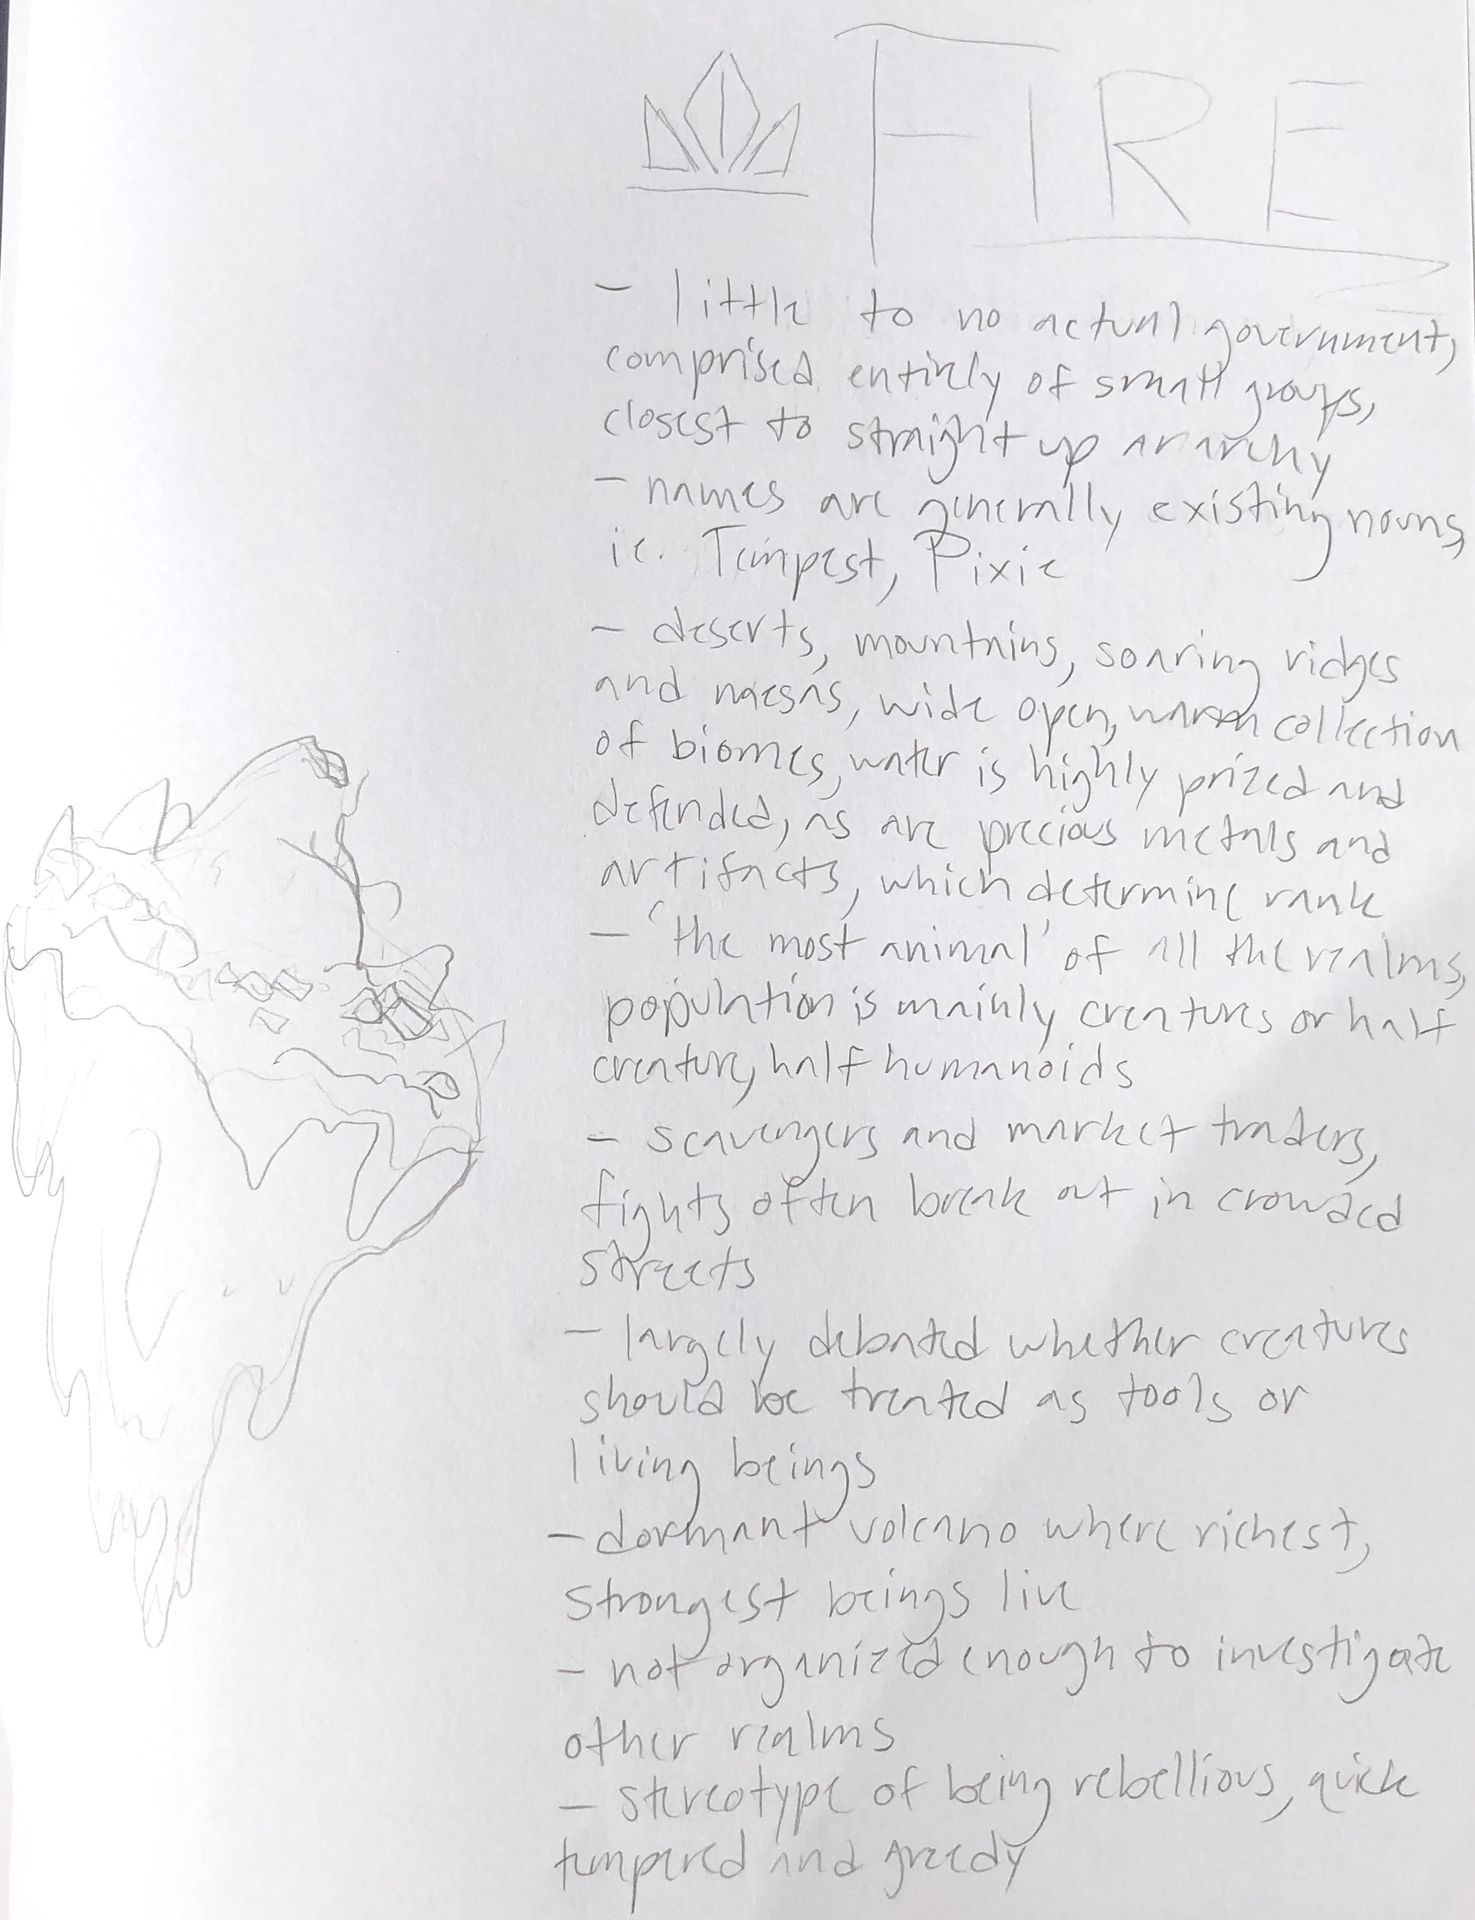 FIRE
- little to no actual government,
comprised entirely of small groups,
closest to straight up anarchy
- names are generally existing nouns,
ie. Tempest, Pixie
- deserts, mountains, soaring ridges
and maesas, wide open, warm collection
of biomes, water is highly prized and
defended, as are precious metals and
artifacts, which determine rank
- 'the most animal' of all the realms,
population is mainly creatures or half
creature, half humanoids
- scavengers and market traders,
fights often break out in crowded
streets
- largely debated whether creatures
should be treated as tools or
living beings
- dormant volcano where richest,
strongest beings live
- not organized enough to investigate
other realms
- stereotype of being rebellious, quick
tempered and greedy